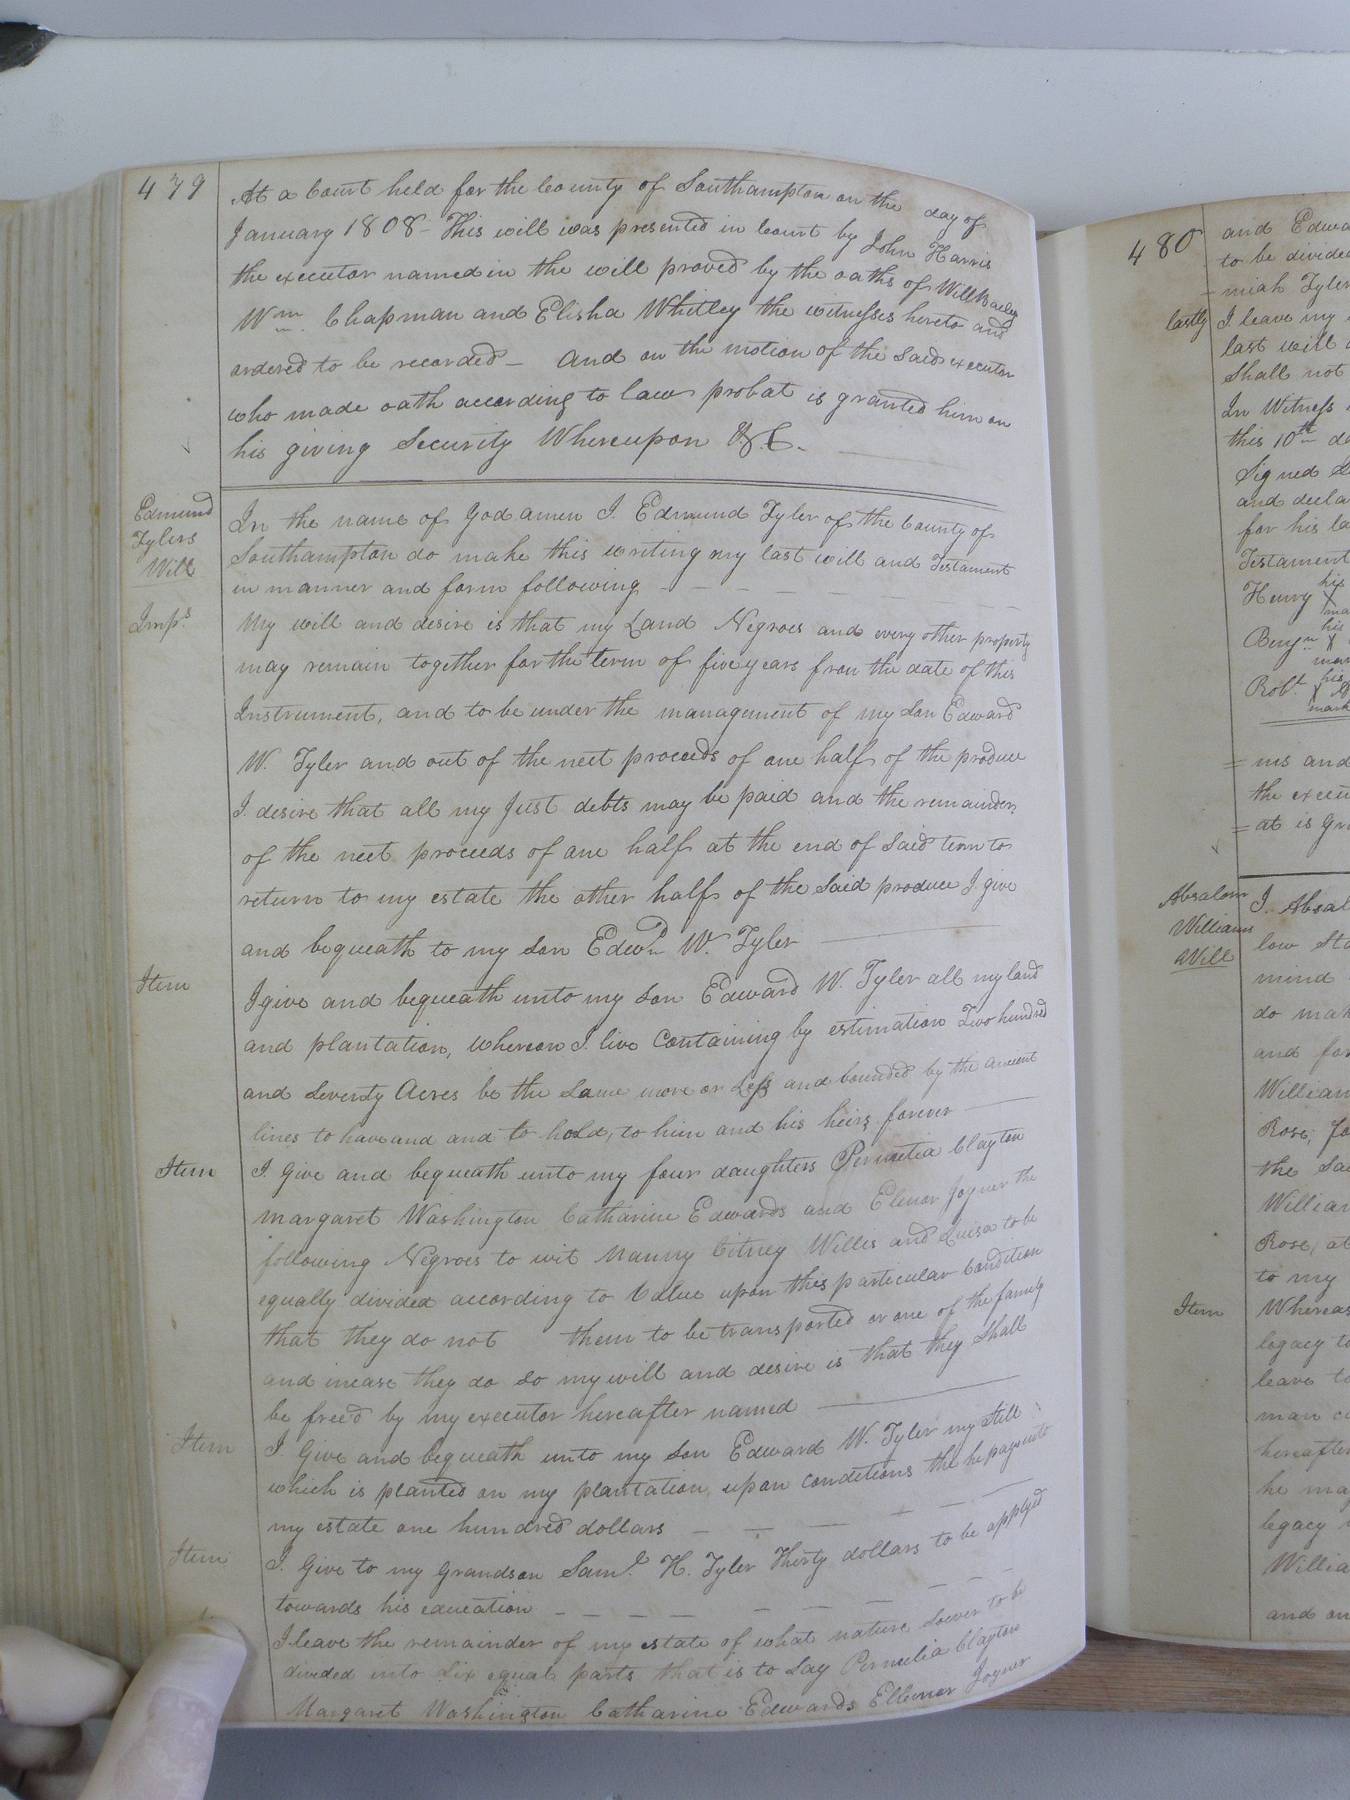 479
At a Court held for the County of Southampton on the day of
January 1808 - This will was presented in Court by John Harris
the executor named in the will proved by the oaths of Will Bailey
Wm. Chapman and Elisha Whitley the witnesses hereto and
ordered to be recorded - And on the motion of the said executor
who made oath according to law probat is granted him on
his giving Security Whereupon &C.
Edmund
Tylers
Will
In the name of God amen I. Edmund Tyler of the County of
Southampton do make this writing my last will and Testament
in manner and form following - - - - - - - -
Imps.
My will and desire is that my Land Negroes and every other property
may remain together for the term of five years from the date of this
Instrument, and to be under the management of my son Edward
W. Tyler and out of the neet proceeds of one half of the produce
I. desire that all my Just debts may be paid and the remainder
of the neet proceeds of one half at the end of said term to
return to my estate the other half of the said produce I. give
and bequeath to my son Edwd. W. Tyler
Item
I give and bequeath unto my son Edward W. Tyler all my land
and plantation, whereon I. live Containing by estimation Two hundred
and Seventy Acres be the Same more or Less and bounded by the ancient
lines to have and and to hold, to him and his heirs forever
Item
I. Give and bequeath unto my four daughters Permelia Clayton
Margaret Washington Catharine Edwards and Elenor Joyner the
following Negroes to wit Nanny Citney Willis and Luisa to be
equally divided according to Value upon this particular Condition
that they do not them to be transported or one of the family
and incase they do so my will and desire is that they Shall
be free'd by my executor hereafter named
Item
I Give and bequeath unto my son Edward W. Tyler my Still
which is planted on my plantation upon conditions the he pays unto
my estate one hundred dollars - - - - -
Item
I. Give to my Grandson Saml. H. Tyler Thirty dollars to be applyed
towards his education - - - - - - -
I leave the remainder of my estate of what nature soever to be
divided into Six equal parts that is to say Permelia Clayton
Margaret Washington Catharine Edwards Ellenor Joyner
480
and Edwa
to be divided
- miah Tyler
lastly
I. leave my
last will
Shall not
In Witness
this 10th
Signed
and decla
for his la
Testament
Henry X his
Benjn. X his
Robt. X his
mark
= ms and
the execu
= at is gra
Absalom
Williams
Will
I. Absal
low Sta
mind
do mak
and for
William
Rose,
the Sa
William
Rose, at
to my
Item
Whereas
legacy to
leave to
man
hereafter
he may
legacy
William
and on